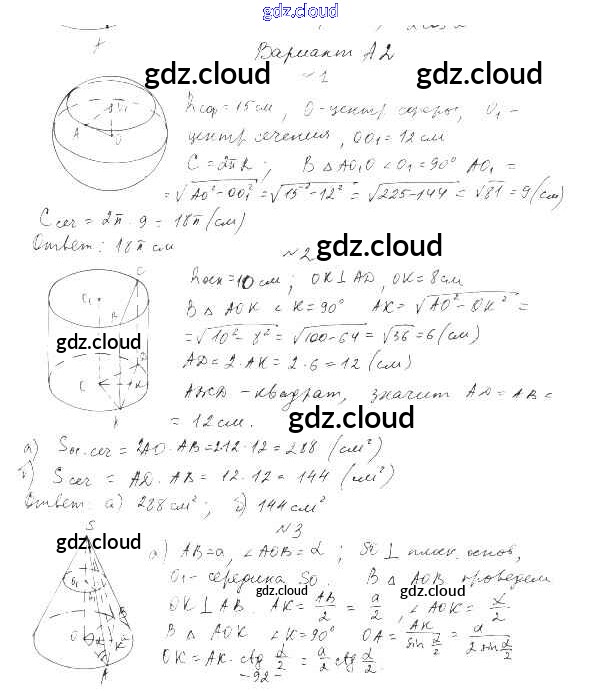 gdz.cloud
Вариант А2
gdz.cloud gdz.cloud
№1
Rсф = 15 см, О - центр сферы, О₁ -
центр сечения, ОО₁ = 12 см
C = 2πR; В Δ АО₁О ∠О₁ = 90° АО₁ =
= √AO² - OO₁² = √15² - 12² = √225-144 = √81 = 9 (см)
Cсеч = 2π · 9 = 18π (см)
Ответ: 18π см
№2
gdz.cloud
Rосн = 10 см; OK ⊥ AD, OK = 8 см
В Δ АОК ∠K = 90° AK = √AO² - OK² =
= √10² - 8² = √100-64 = √36 = 6 (см)
gdz.cloud
AD = 2 · AK = 2 · 6 = 12 (см)
АВСD - квадрат, значит AD = AB =
= 12 см.
gdz.cloud
а) Sос.сеч = 2AO · AB = 2·12·12 = 288 (см²)
б) Sсеч = AD · AB = 12 · 12 = 144 (см²)
Ответ: а) 288 см²; б) 144 см²
№3
gdz.cloud
а) AB = a, ∠AOB = α; SO ⊥ плоск. основ,
O₁ - середина SO. В Δ AOB проведем
gdz.cloud gdz.cloud
OK ⊥ AB. AK = AB/2 = a/2, ∠AOK = α/2.
В Δ AOK ∠K = 90° OA = AK/sin α/2 = a/2 sin α/2
OK = AK · ctg α/2 = a/2 ctg α/2.
-92-
gdz.cloud